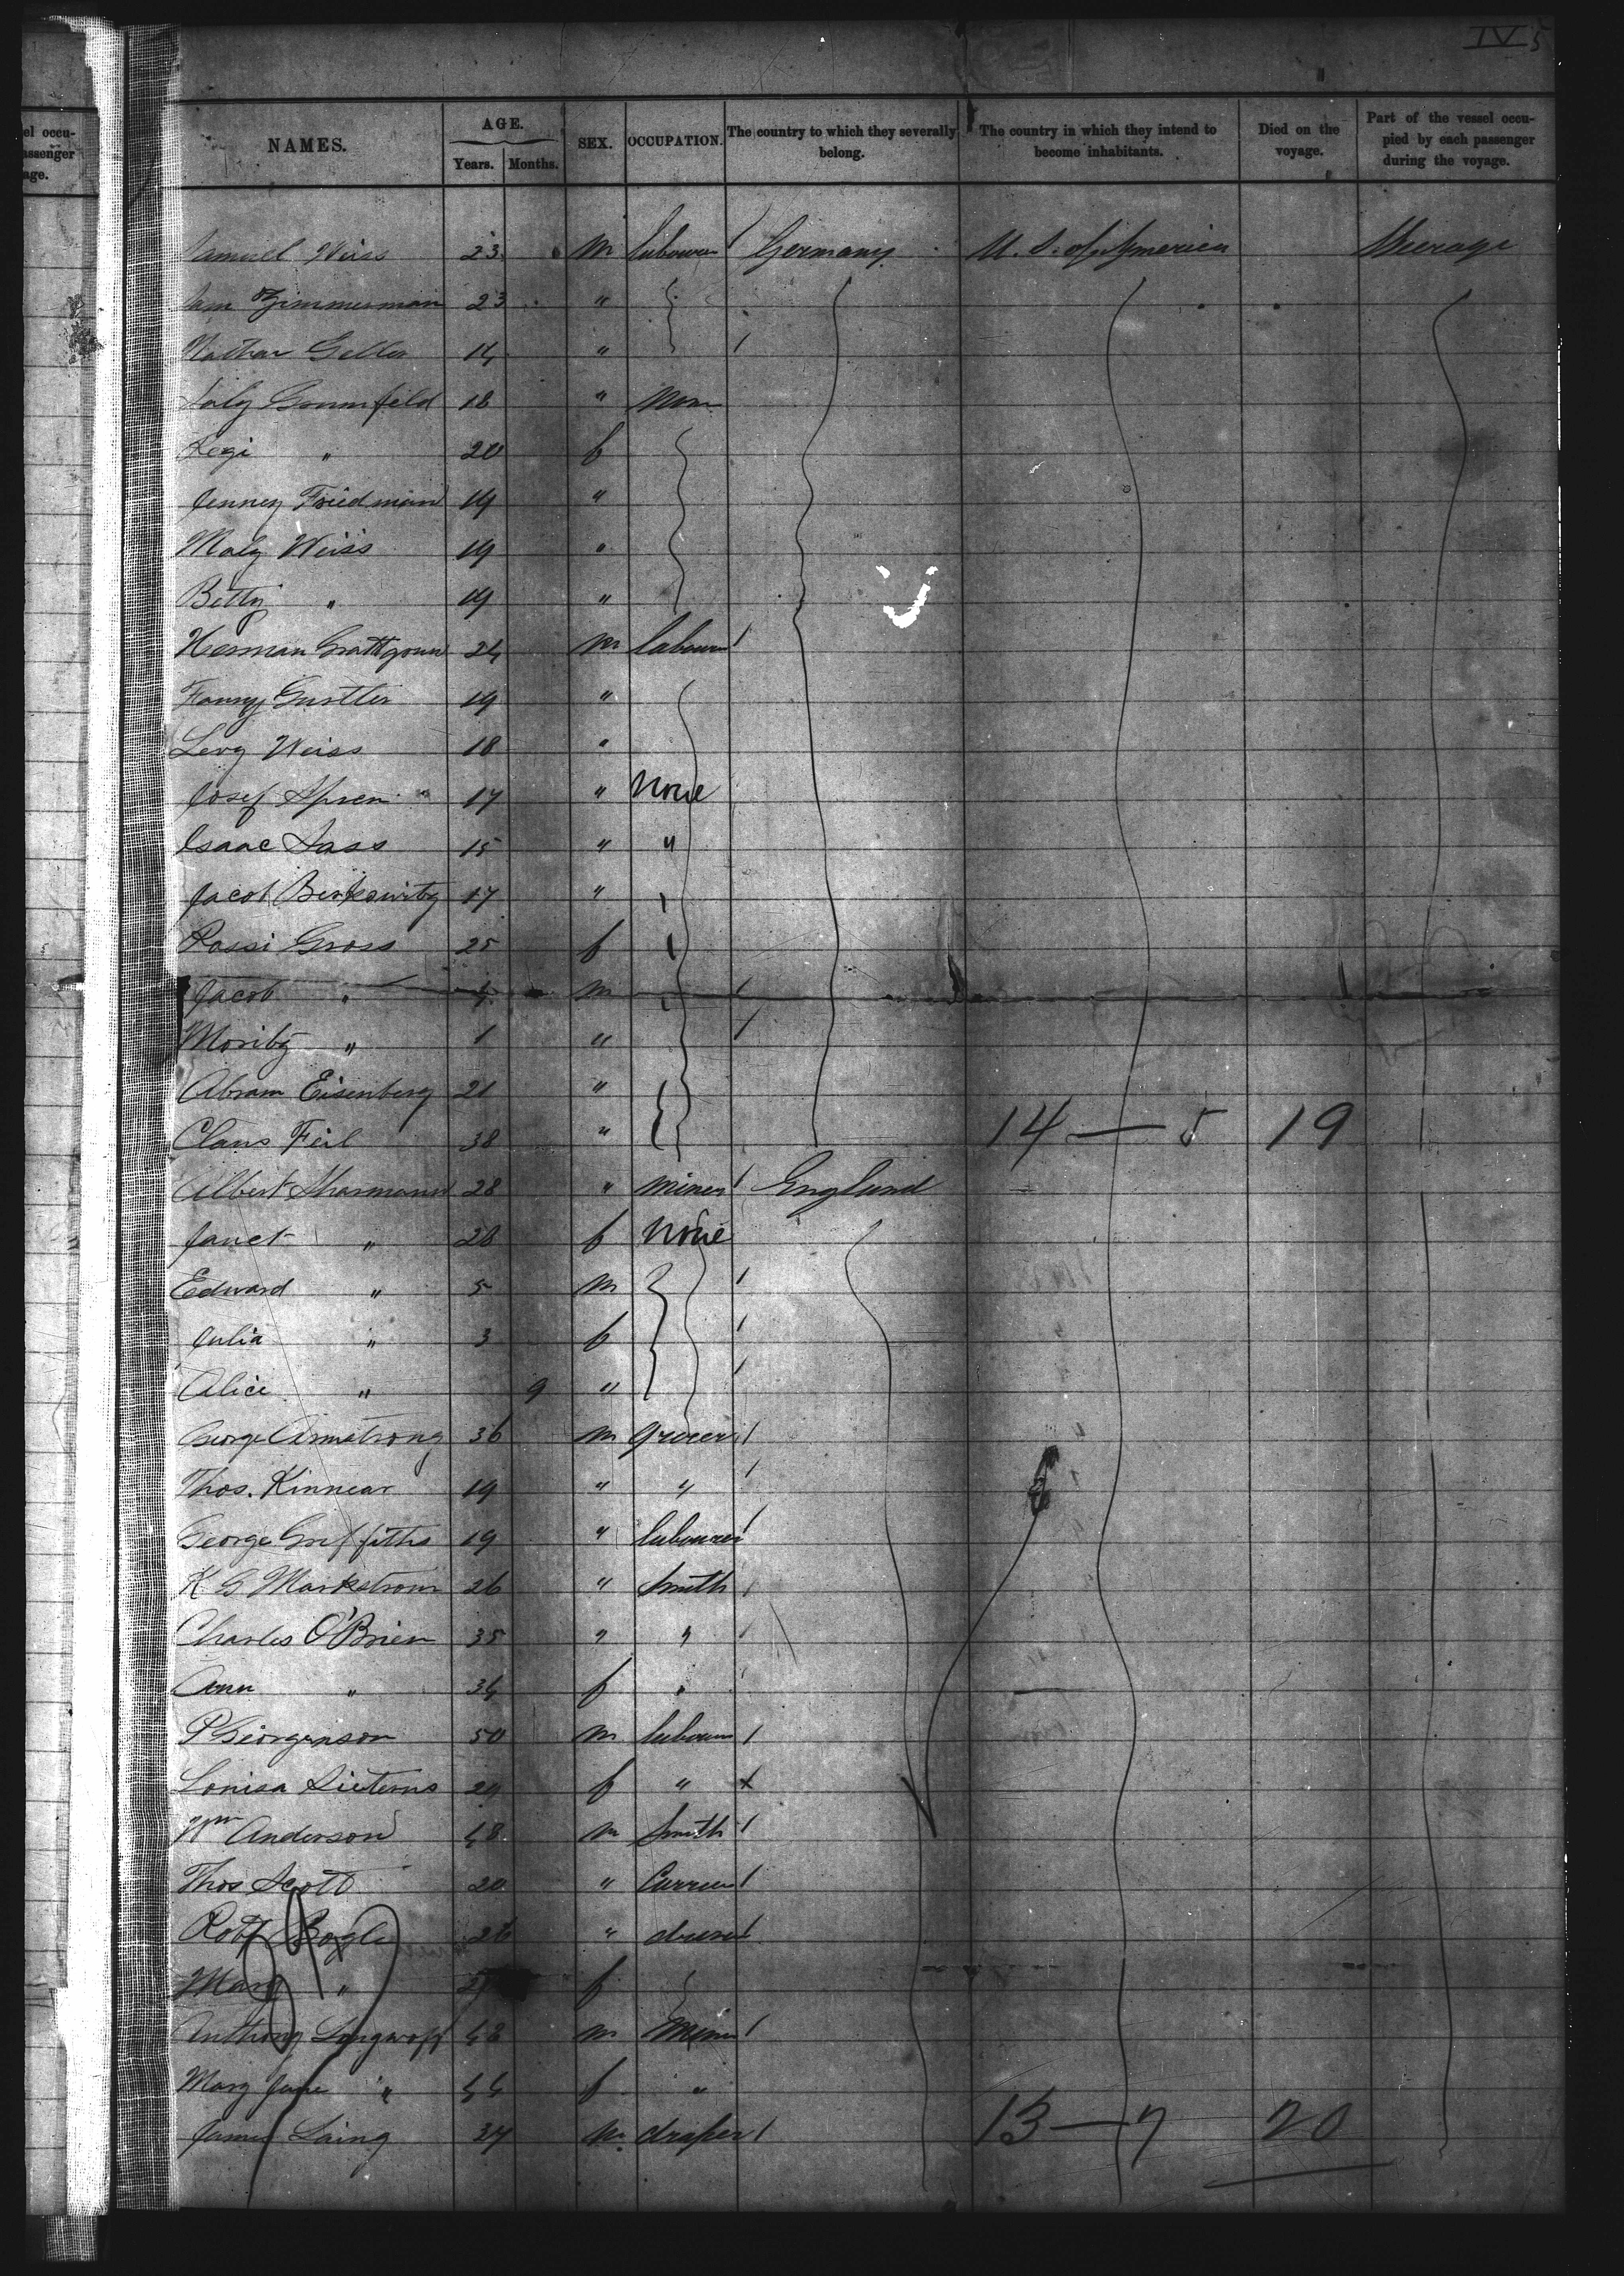 IV 5
el occu-
assenger
age.
NAMES. AGE. Years. Months. SEX. OCCUPATION. The country to which they severally belong. The country in which they intend to become inhabitants. Died on the voyage. Part of the vessel occu-pied by each passenger during the voyage.
Samuel Weiss 23 m labourer Germany U. S. of America Steerage
Sam Zimmerman 23 "
Nathan Geller 14 "
Saly Grunnfeld 18 " None
Regi " 20 f
Jenney Friedman 19 "
Maly Weiss 19 "
Betty " 19 "
Herman 24 m labourer
Fanny Gustler 19 "
Levy Weiss 18 "
Josef 17 " None
Isaac Sass 15 " "
Jacob Berkowitz 17 "
Rossi Gross 25 f
Jacob " 4 m
Moritz " 1 "
Abram Eisenberg 21 "
Claus Feil 38 " 14 — 5 19
Albert Sharmann 28 " miner England
Janet " 28 f None
Edward " 5 m
Julia " 3 f
Alice " 9 "
George Armstrong 36 m Grocer
Thos. Kinnear 19 " "
George Griffiths 19 " labourer
K G Markstrom 26 " Smith
Charles O'Brien 35 " "
Ann " 34 f "
P Georgenson 50 m labourer
Louisa 29 f "
Wm Anderson 48 m Smith
Thos Scott 20 " Currier
Robt Bogle 26 "
Mary " f
Anthony 48 m Miner
Mary Jane " 44 f "
James Laing 34 m draper 13 — 7 20